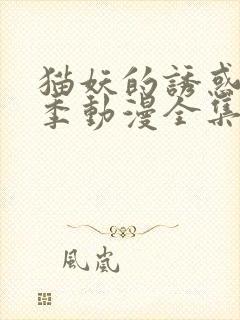 猫妖的誘惑
季動漫全集
風嵐